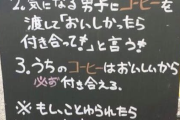 2.気になる男子にコーヒーを
渡して「おいしかったら
付き合って*」と言う*
3.うちのコーヒーはおいしいから
必ず付き合える。
※もし、ことわられたら